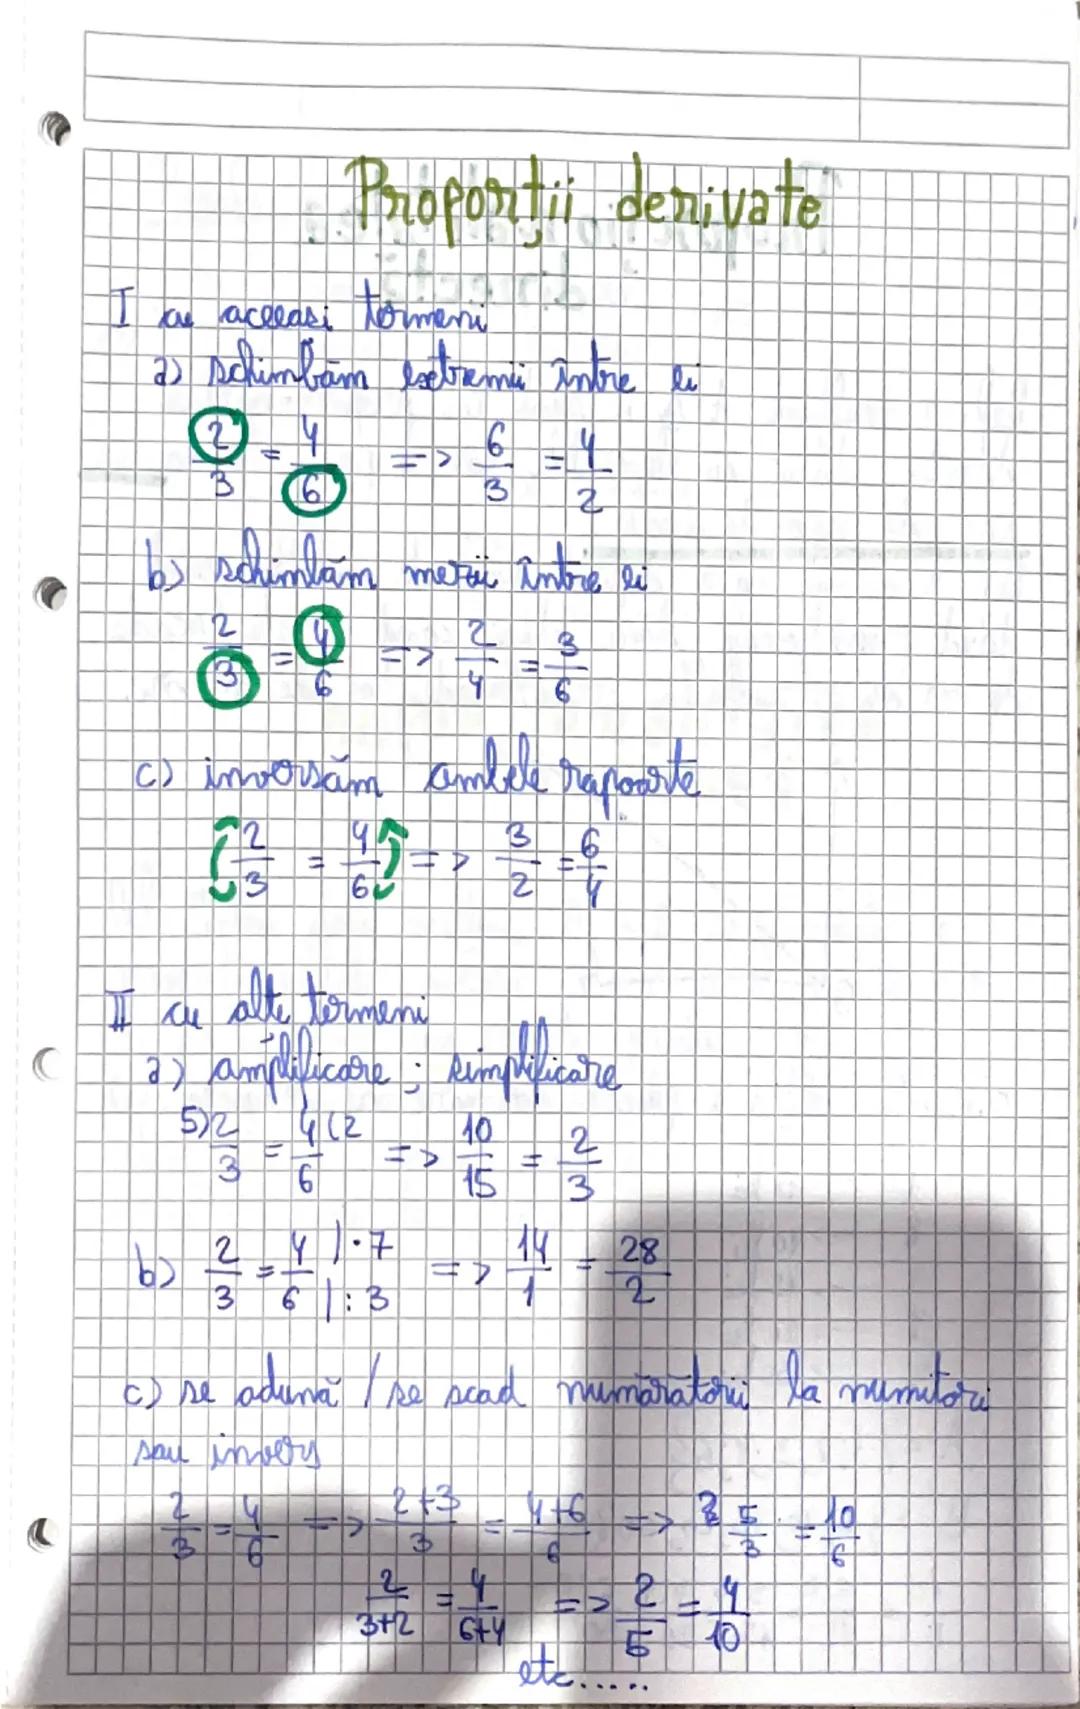 Proporții derivate
I cu aceeasi termeni
a) schimbăm extremii între ei
2/3 = 4/6 => 6/3 = 4/2
b) schimbăm mezii între ei
2/3 = 4/6 => 2/4 = 3/6
c) inversăm ambele rapoarte
2/3 = 4/6 => 3/2 = 6/4
II cu alte termeni
a) amplificare ; simplificare
5)2/3 = 4/6 (2 => 10/15 = 2/3
b) 2/3 = 4/6 |·7 |:3 => 14/1 = 28/2
c) se adună / se scad numărătorii la numitori
sau invers
2/3 = 4/6 => 2+3/3 = 4+6/6 => 5/3 = 10/6
2/3+2 = 4/6+4 => 2/5 = 4/10
etc.....